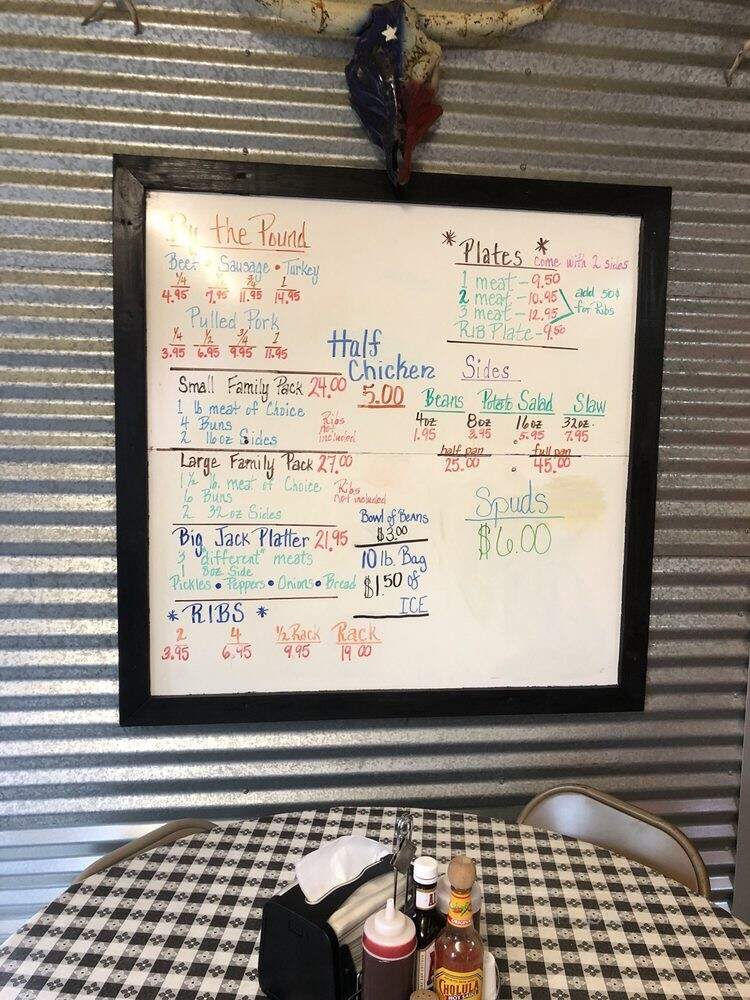 By the Pound
Beef • Sausage • Turkey
1/4 1/2 3/4 1
4.95 7.95 11.95 14.95
Pulled Pork
1/4 1/2 3/4 1
3.95 6.95 9.95 11.95
Small Family Pack 24.00
1 lb meat of Choice
4 Buns
2 16oz Sides
Ribs
not
included
Large Family Pack 27.00
1 1/2 lb. meat of Choice
6 Buns
2 32oz Sides
Ribs
not included
Big Jack Platter 21.95
3 "different" meats
1 8oz Side
Pickles • Peppers • Onions • Bread
* RIBS *
2 4 1/2 Rack Rack
3.95 6.95 9.95 19.00
Half
Chicken
5.00
Bowl of Beans
$3.00
10 lb. Bag
$1.50 of
ICE
* Plates * come with 2 sides
1 meat - 9.50
2 meat - 10.95
3 meat - 12.95
RIB Plate - 9.50
add 50¢
for Ribs
Sides
Beans Potato Salad Slaw
4oz 8oz 16oz 32oz.
1.95 3.95 5.95 7.95
half pan full pan
25.00 45.00
Spuds
$6.00
CHOLULA
HOT SAUCE